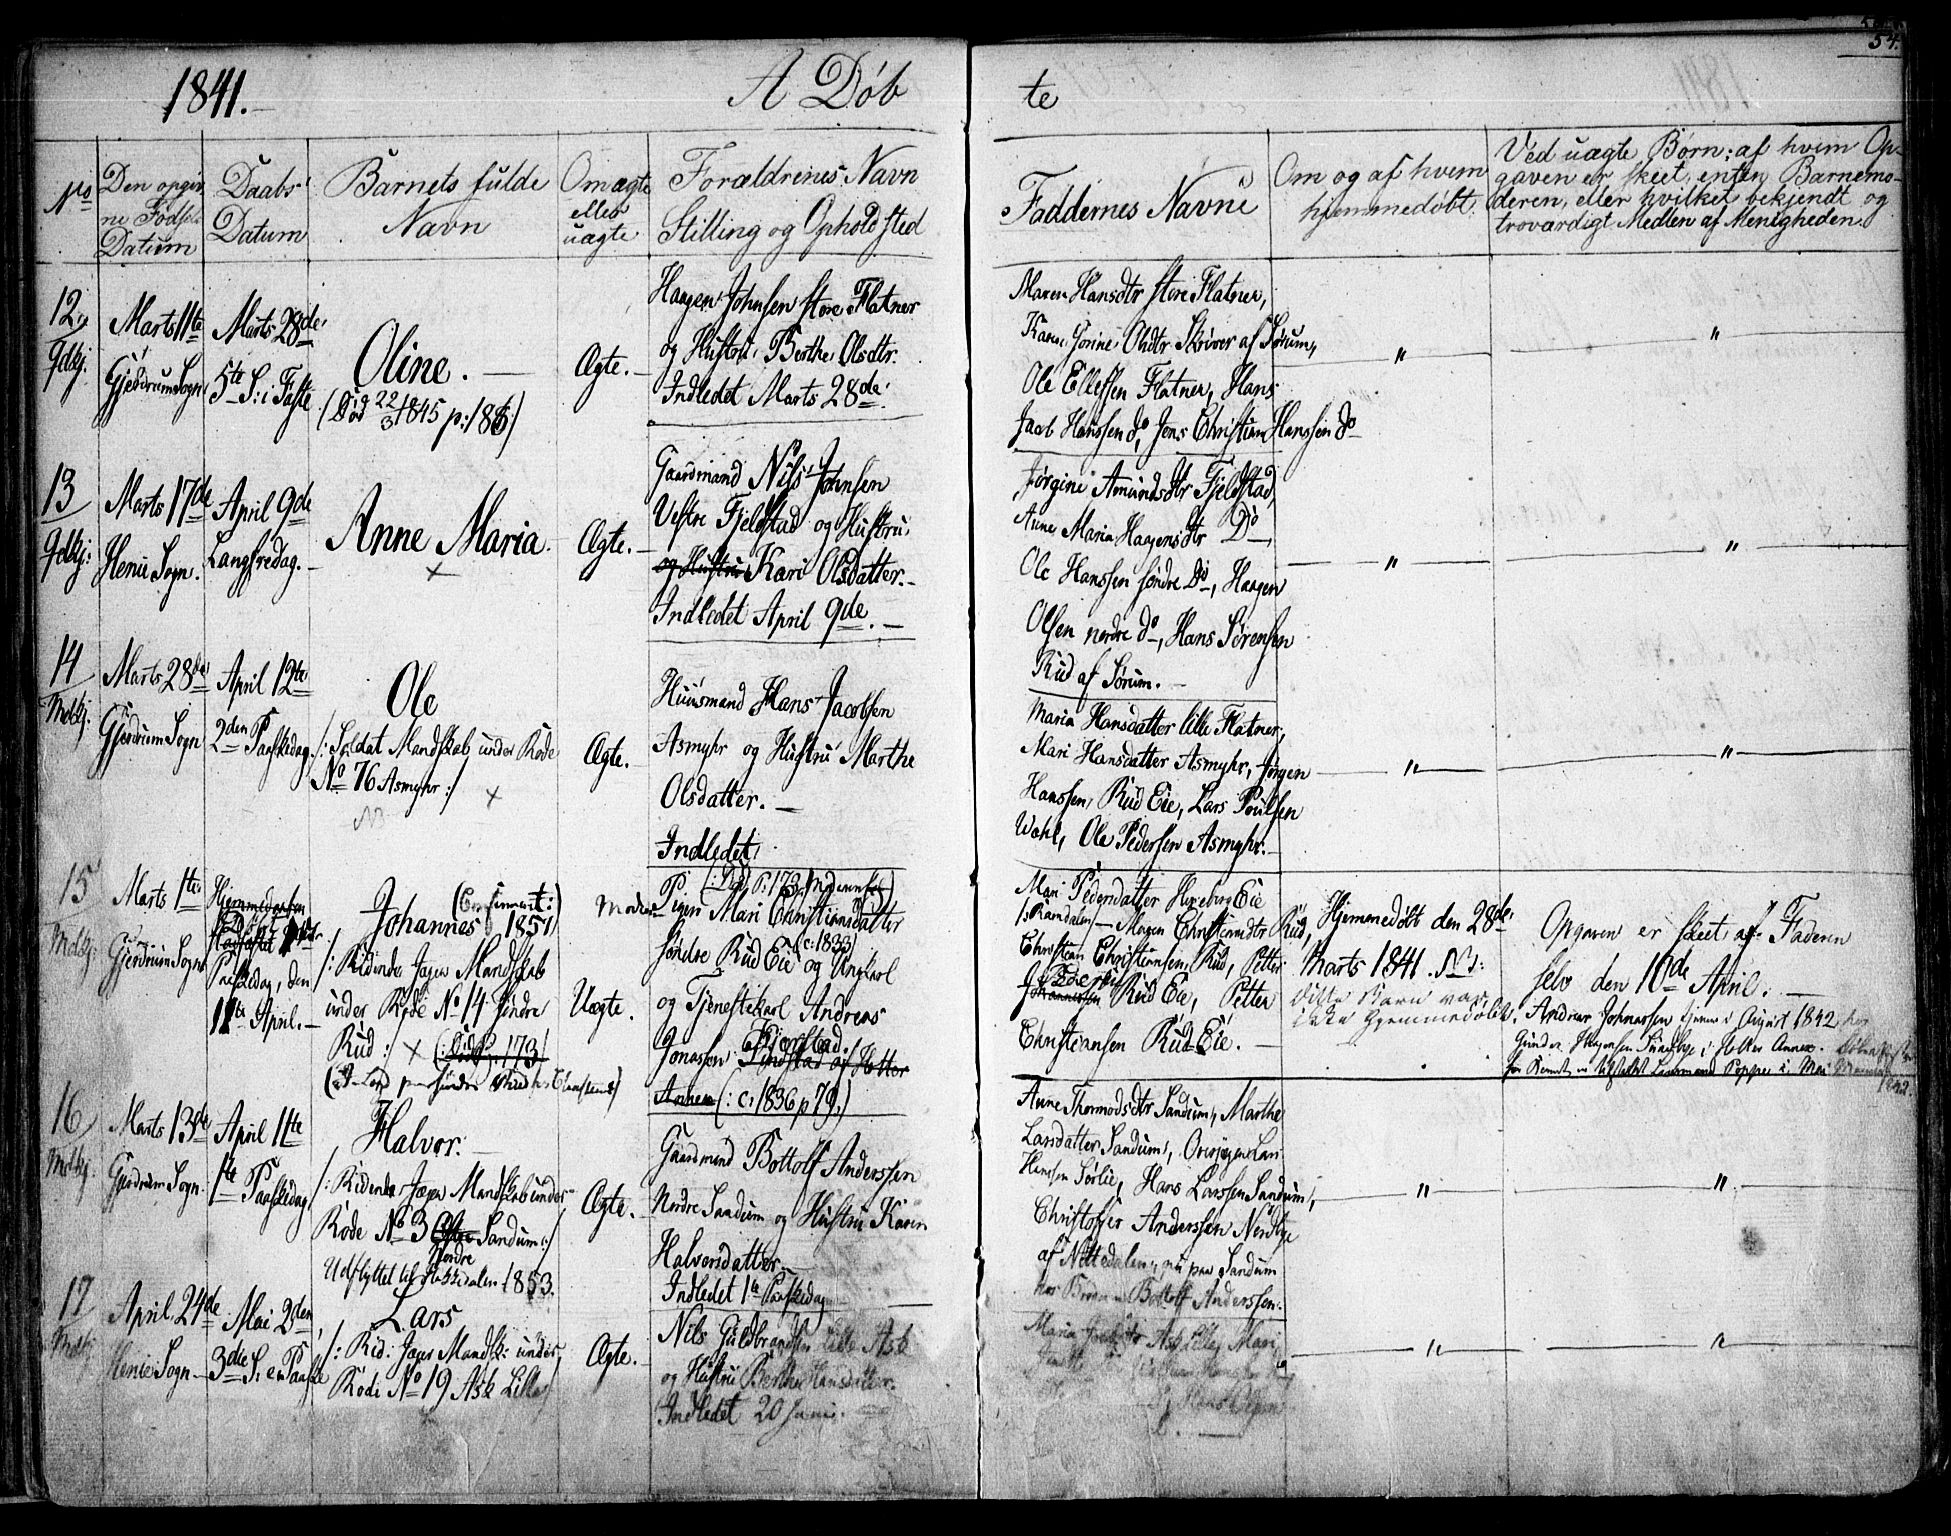 54.
1841.
A Døb
te
No
Den opgiv
ne Fødsels
Datum
Daabs
Datum
Barnets fulde
Navn
Om ægte
eller
uægte
Forældrenes Navn
Stilling og Opholdsted
Faddernes Navne
Om og af hvem
hjemmedøbt
Ved uægte Børn: af hvem Op-
gaven er skeet, enten Barnemo-
deren, eller hvilket bekjendt og
troværdigt Medlem af Menigheden.
12
Marts 11te
Gjerdrum Sogn
Marts 28de
5te S: i Faste
Oline. —
(Død 22/3 1845 p: 186)
Ægte. —
Haagen Johnsen store Flatner
og Hustru Berthe Olsdtr.
Indledet Marts 28de
Maren Hansdtr store Flatner,
Karen Gorine Olsdtr Skriver af Sørum,
Ole Ellefsen Flatner, Hans
Jacob Hanssen do, Jens Christian Hanssen do
"
"
13
Marts 17de
Henie Sogn.
April 9de
Langfredag. —
Anne Maria.
×
Ægte. —
Gaardmand Nils Johnsen
Vestre Fjeldstad og Hustru
og Hustru Kari Olsdatter. —
Indledet April 9de. —
Jørgine Amundsdtr Fjeldstad
Anne Maria Haagensdtr Do,
Ole Hanssen søndre Do, Haagen
Olsen nordre do, Hans Sørensen
Rud af Sørum. —
"
"
14
Marts 28de
Gjerdrum Sogn
April 12te
2den Paaskedag
Ole
/: Soldat Mandskab under Rode
No 76 Asmyhr :/ ×
NB
Ægte. —
Huusmand Hans Jacobsen
Asmyhr og Hustru Marthe
Olsdatter. —
Indledet
Maria Hansdatter lille Flatner,
Mari Hansdatter Asmyhr, Jørgen
Hanssen, Rud Eie, Lars Poulsen
Wahl, Ole Pedersen Asmyhr. —
"
"
15
Marts 1te
Gjerdrum Sogn
Paaskedag, den
11te April. —
Johannes (Confirmert: 1857)
/: Ridende Jæger Mandskab
under Rode No 14 Søndre
Rud :/ × (: Død p. 173)
Uægte. —
Pigen Mari Christiansdatter
søndre Rud Eie (c: 1833) og Ungkarl
og Tjenestekarl Andreas
Jonassen
(: c: 1836 p 79.)
Mari Pedersdatter Hexeberg Eie
/: Ramdalen :/ — Maren Christiansdtr Rud,
Christian Christiansen, Rud, Petter
Rud Eie, Petter
Christiansen Rud Eie. —
Hjemmedøbt den 28de
Marts 1841. NB:
Dette Barn var
ikke hjemmedøbt.
Opgaven er skeet af Faderen
selv den 10de April. —
Andreas Johnassen tjener i August 1842 hos
1842.
16
Marts 13de
Gjerdrum Sogn
April 11te
1te Paaskedag
Halvor. —
/: Ridende Jæger Mandskab under
Rode No 3 Østre Sandum :/
Nordre
Udflyttet til Hakkedalen 1853.
Ægte. —
Gaardmand Bottolf Anderssen
Nordre Sandum og Hustru Karen
Halvorsdatter. —
Indledet 1te Paaskedag
Anne Thormodsdtr Sandum, Marthe
Larsdatter Sandum,
Hanssen Sørlie, Hans Larssen Sandum,
Christoffer Anderssen Nordbye
af Nittedalen, nu paa Sandum
hos Broderen Bottolf Anderssen.
"
"
17
April 24de
Henie Sogn
Mai 2den
3die S: e: Paaske
Lars
/: Rid: Jæger Mandsk: under
Rode No 19 Ask Lille
Ægte. —
Nils Guldbrandsen Lille Ask
og Hustru Berthe Hansdatter.
Indledet 20 Juni.
"
"